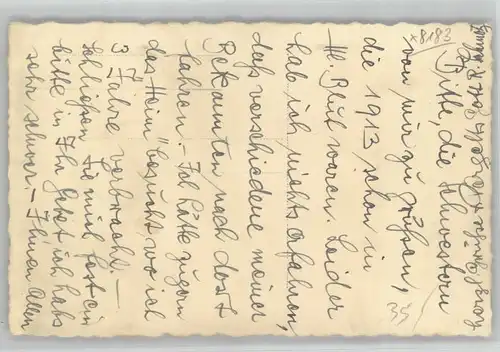 Bitte, die Schwestern
von mir zu grüßen,
die 1913 schon in
Hl. Blut waren. Leider
hab ich nichts erfahren,
daß verschiedene meiner
Bekannten nach dort
fahren. – Ich hätte zu gern
das Heim besucht wo ich
3 Jahre verbracht. –
Schließen Sie mich fest ein
bitte in Ihr Gebet ich habs
sehr schwer. – Ihnen allen
x8183
35/